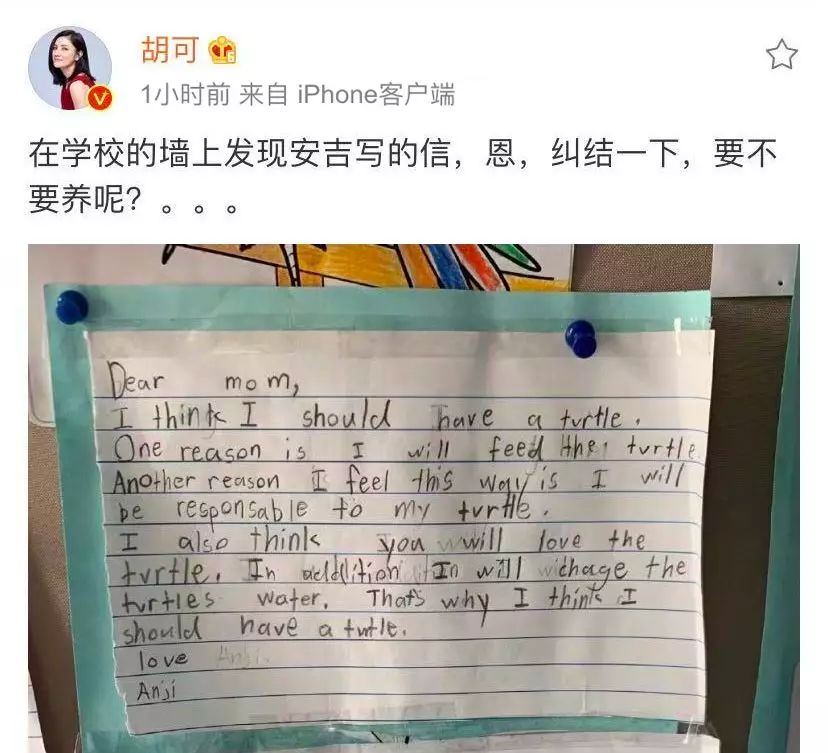 胡可
1小时前 来自 iPhone客户端
在学校的墙上发现安吉写的信，恩，纠结一下，要不
要养呢？。。。
Dear mom,
I think I should have a turtle.
One reason is I will feed the turtle
Another reason I feel this way is I will
be responsable to my turtle.
I also think you will love the
turtle. In addition I will chage the
turtles water. That's why I think I
should have a tutle.
love Anji.
Anji